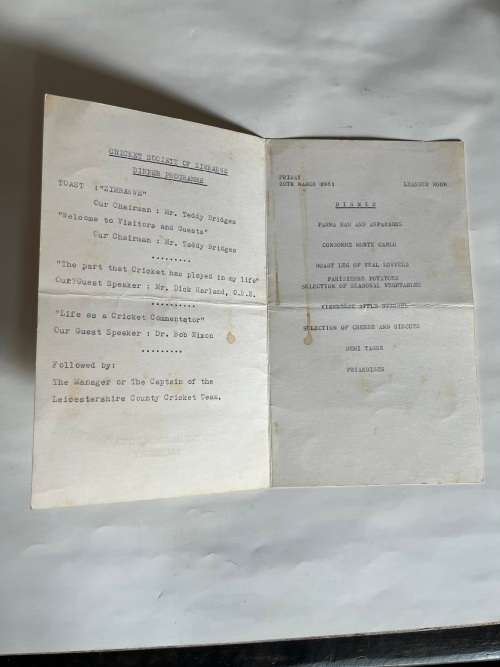 CRICKET SOCIETY OF ZIMBABWE
DINNER PROGRAMME
TOAST :"ZIMBABWE"
Our Chairman : Mr. Teddy Bridges
"Welcome to Visitors and Guests"
Our Chairman : Mr. Teddy Bridges
.........
"The part that Cricket has played in my life"
Our Guest Speaker : Mr. Dick Harland, O.B.E.
..........
"Life as a Cricket Commentator"
Our Guest Speaker : Dr. Bob Nixon
.........
Followed by:
The Manager or The Captain of the
Leicestershire County Cricket Team.
FRIDAY
20TH MARCH 1981
ROOM
DINNER
PARMA HAM AND ASPARAGUS
CONSOMME MONTE CARLO
ROAST LEG OF VEAL
PARISIENNE POTATOES
SELECTION OF SEASONAL VEGETABLES
APPLE
SELECTION OF CHEESE AND BISCUITS
DEMI TASSE
FRIANDISES